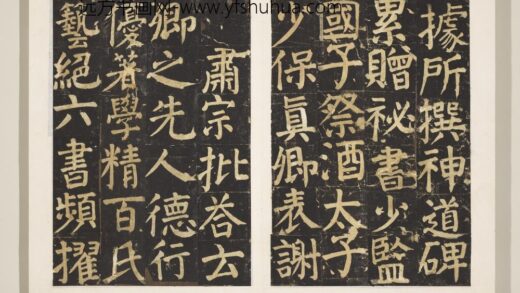 远方书画网- www.yfshuhua.com
據所撰神道碑
累贈祕書少監
國子祭酒太子
少保眞卿表謝
肅宗批荅云
卿之先人德行
優著學精百氏
藝絕六書頻擢